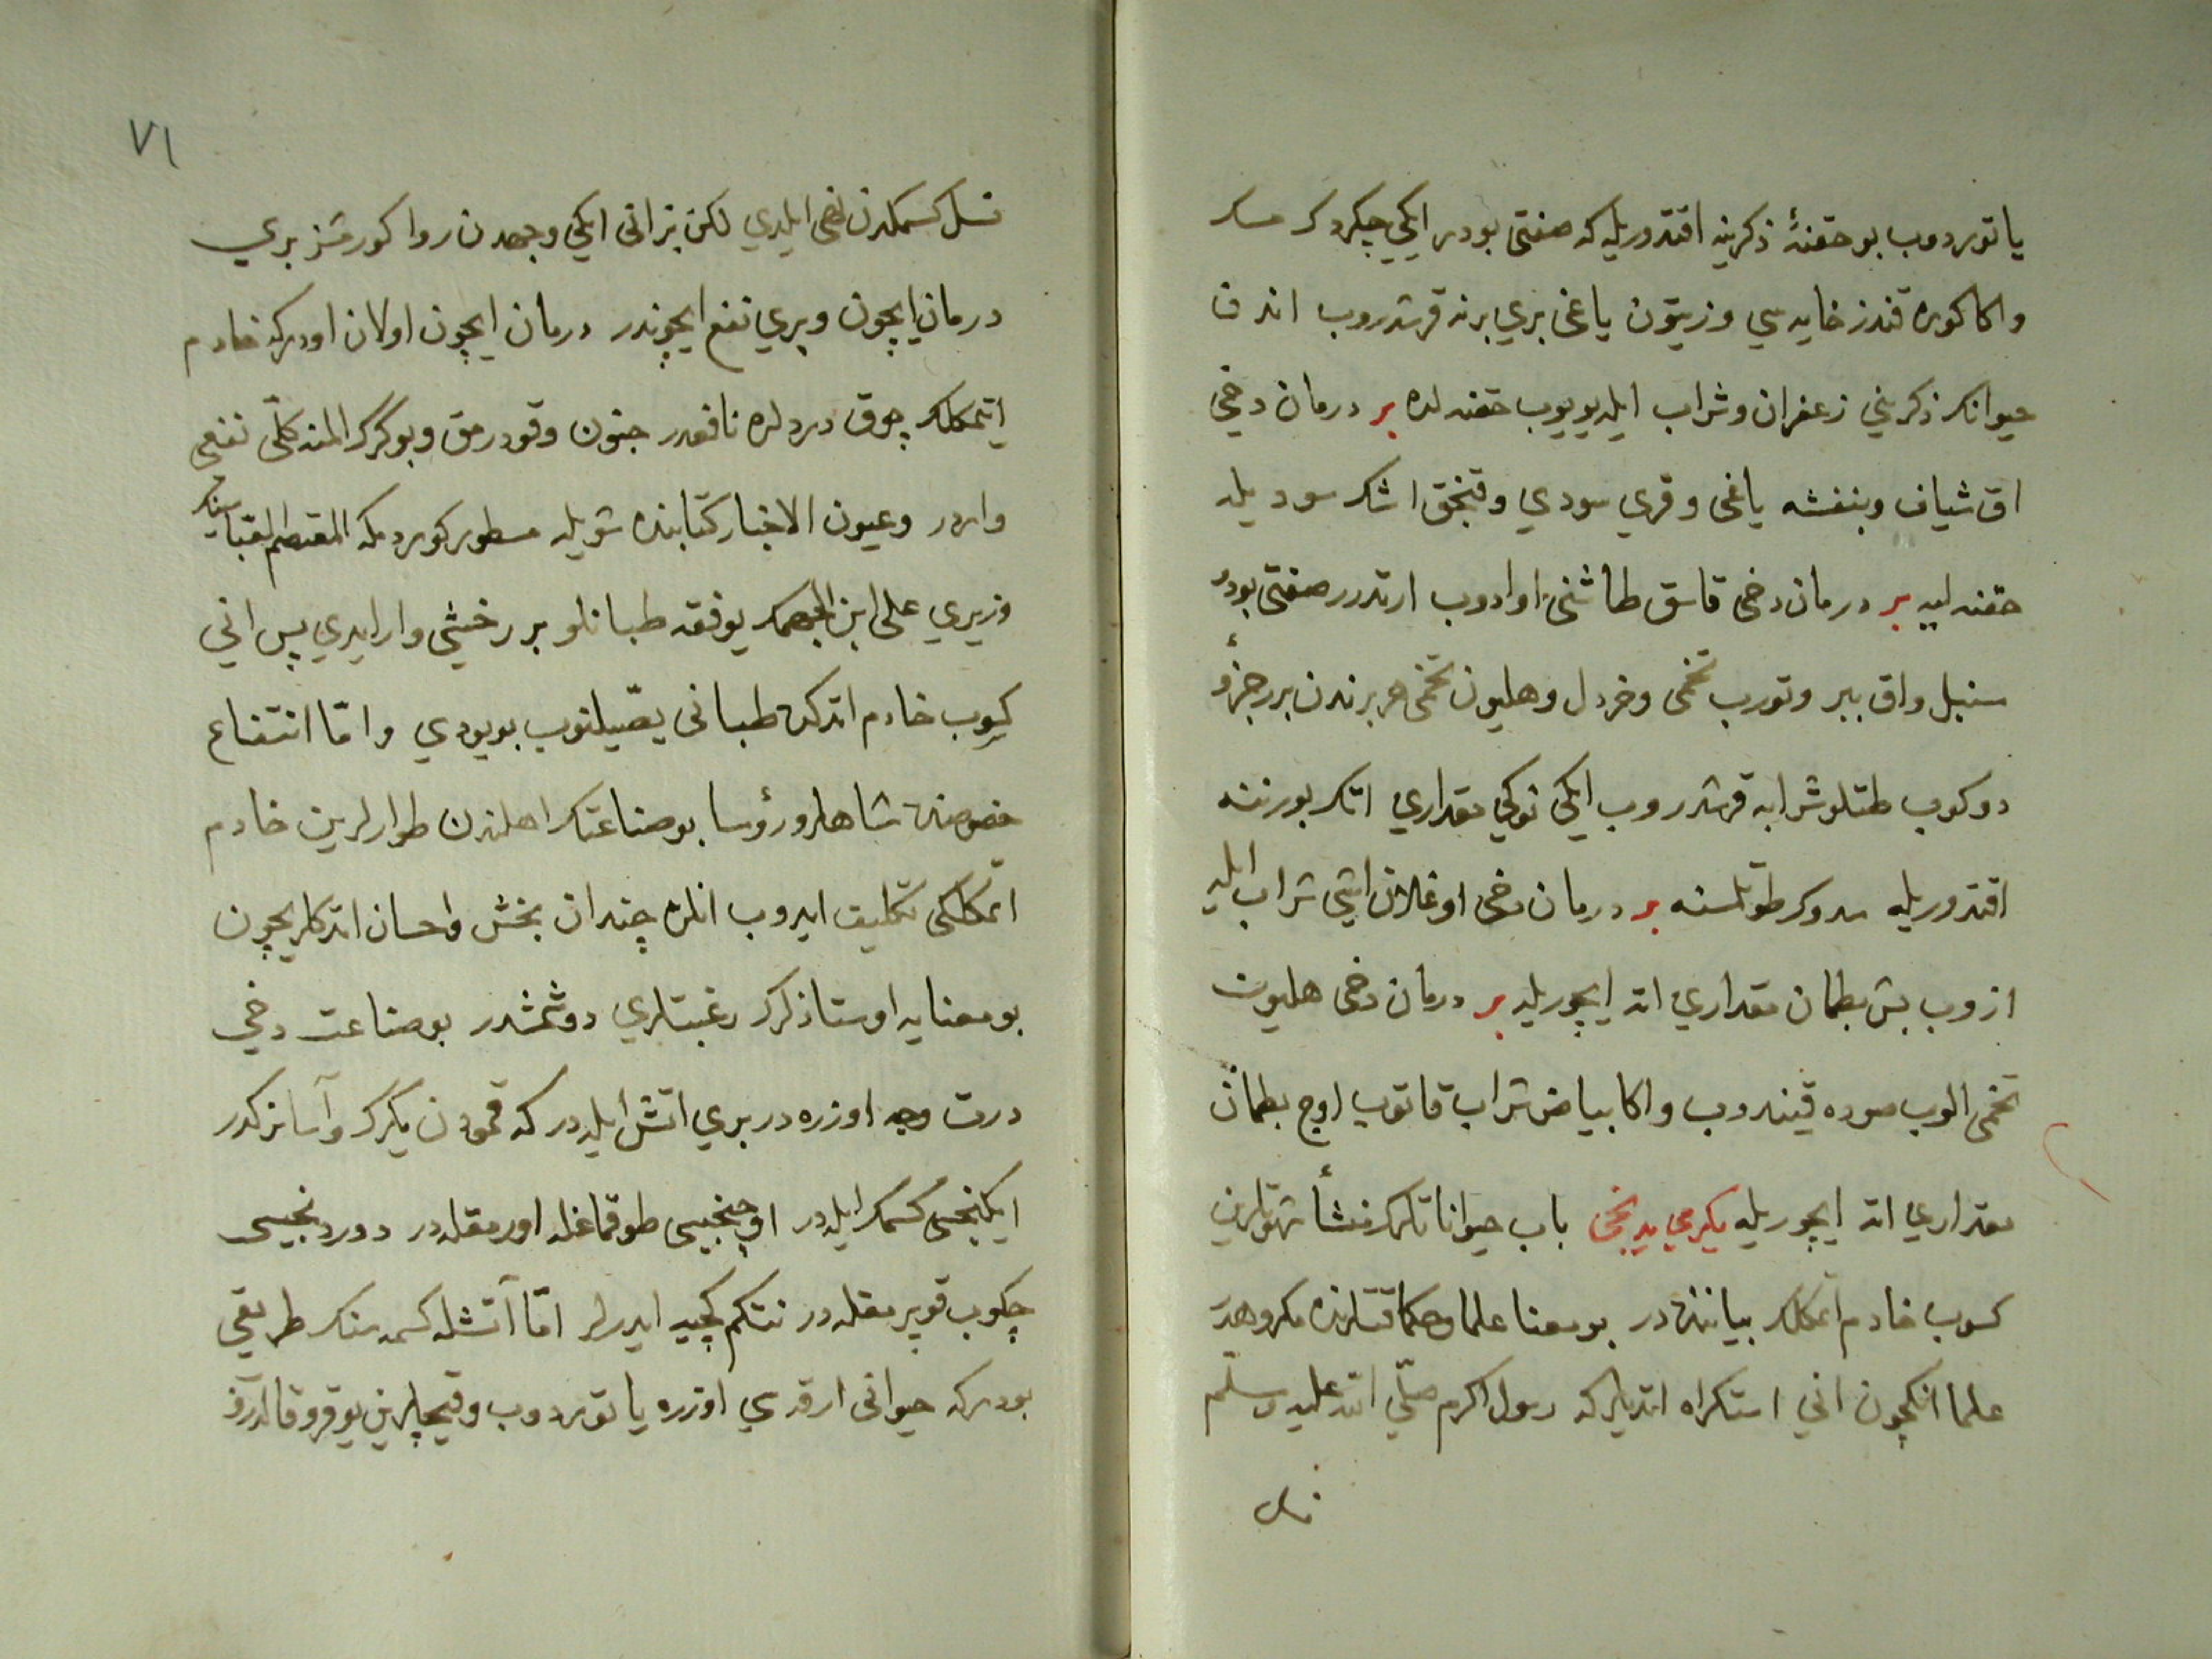 ياتوردوب بو حقنۀ ذكرينه اقتدوريله كه صفتى بودر ايكى چكردك مسك
واكا كوره قندز خايه سي وزيتون ياغى بري برنه قرشدروب اندن
حيوانك ذكريني زعفران وشراب ايله يويوب حقنه لده بر درمان دخي
اق شياف وبنفشه ياغى وقري سودي وقبخق اشك سوديله
حقنه ليه بر درمان دخى قاسق طاشنى اوادوب ارتدرر صفتى بودر
سنبل واق ببر وتورب تخمى وخردل وهليون تخمى هر برندن برر جزؤ
دوكوب طتلو شرابه قرشدروب ايكى نوكي مقداري اتك بورننه
اقتدوريله سدوك طوتلسنه بر درمان دخى اوغلان اشى شراب ايله
ازوب بش بطمان مقداري اته ايچوريله بر درمان دخى هليون
تخمى الوب صوده قيندوب واكا بياض شراب قاتوب اوچ بطمان
مقداري اته ايچوريله يكرمي يدنجى باب حيواناتلرك منشأ شهوتلرين
كسوب خادم اتمكلك بياننده در بو معنا علما وحكما قتلرنده مكروهدر
علما انكچون اني استكراه اتديلركه رسول اكرم صلّي الله عليه وسلّم
نسل
٧١
نسل كسمكدن نهى ايلدي لكن بز انى ايكي وجهدن روا كورمشز بري
درمان ايچون وبري نفع ايچوندر درمان ايچون اولان اودركه خادم
اتمكلك چوق دردلره نافعدر جنون وقودرمق وبوكرك المنه كلّى نفعى
واردر وعيون الاخبار كتابنده شويله مسطور كوردمكه المعتصم لقبا سنك
وزيري على ابن الجهمك يوفقه طبانلو بر رخشى وار ايدي پس اني
كسوب خادم اتدكده طبانى يصّيلنوب بويودي وامّا انتفاع
خصوصنده شاهلر ورؤسا بو صناعتك اهلندن طوارلرين خادم
اتمكلكى تكليف ايدوب انلره چندان بخش واحسان اتدكلريچون
بو معنايه اوستاذلرك رغبتلري دوشمشدر بو صناعت دخي
درت وجه اوزره در بري اتش ايله در كه قمودن يكرك وآسانركدر
ايكنجى كسمك ايله در اوچنجيسى طوقماغله اورمقله در دوردنجيسى
چكوب قوپرمقله در نتكم كچيه ايدرلر امّا آتشله كسمه سنك طريقي
بودركه حيوانى ارقه سي اوزره ياتوردوب وقيچلرين يوقرو قالدروب